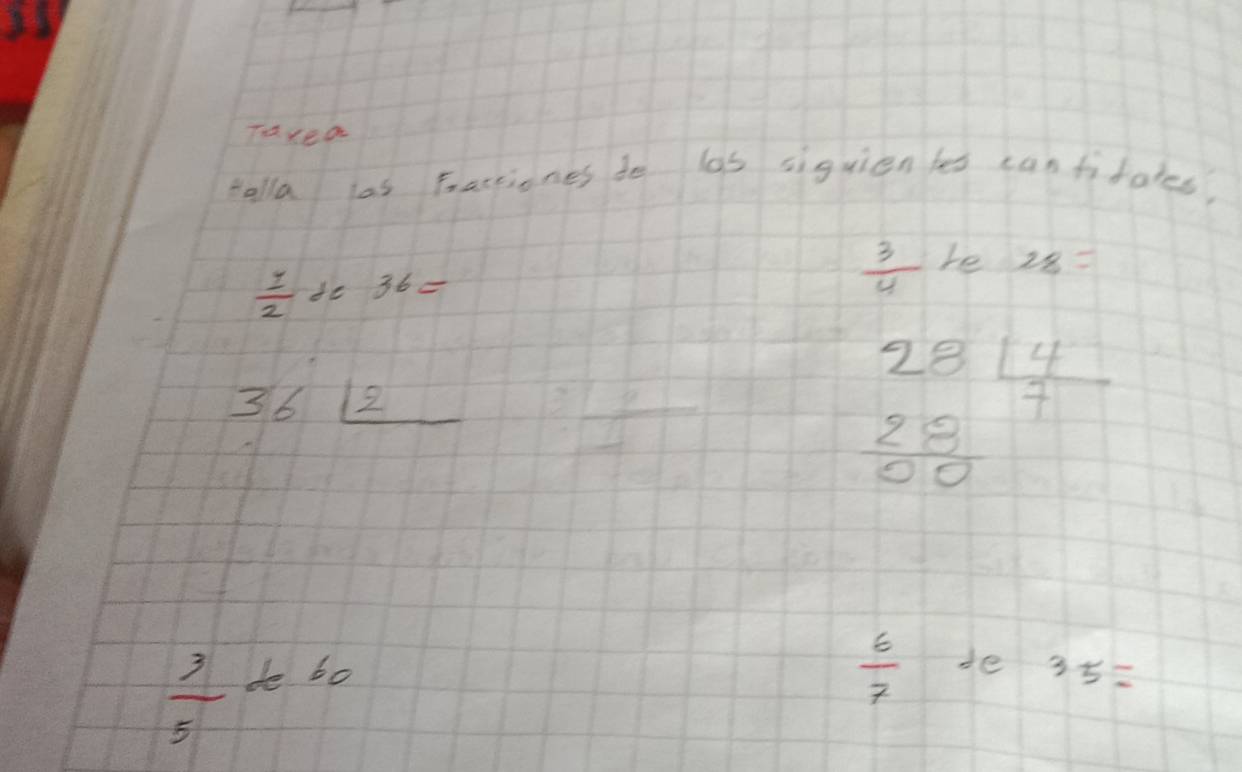 Tarea
Halla las Fracciones de las siguientes cantidades.
1/2 de 36 =
3/4 de 28 =
36 | 2
28 | 4
7
28
00
3/5 de 60
6/7 de 35 =